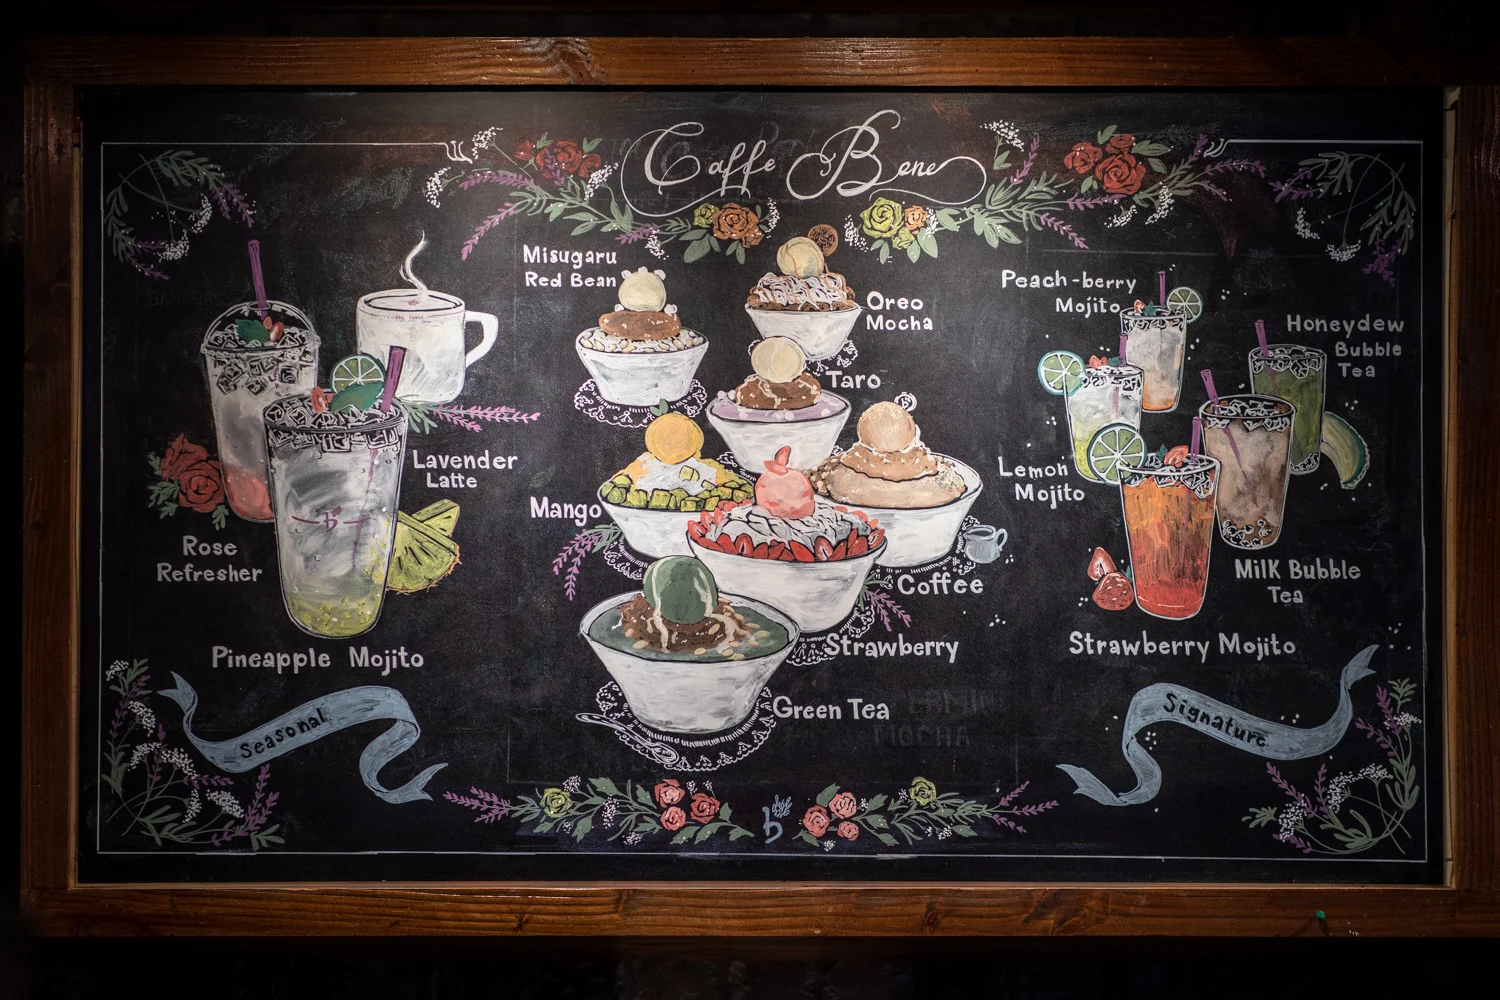 Caffe Bene
Lavender
Latte
Rose
Refresher
Pineapple Mojito
Seasonal
Misugaru
Red Bean
Oreo
Mocha
Taro
Mango
Coffee
Strawberry
Green Tea
Peach-berry
Mojito
Honeydew
Bubble
Tea
Lemon
Mojito
Milk Bubble
Tea
Strawberry Mojito
Signature
caffe bene
b
b